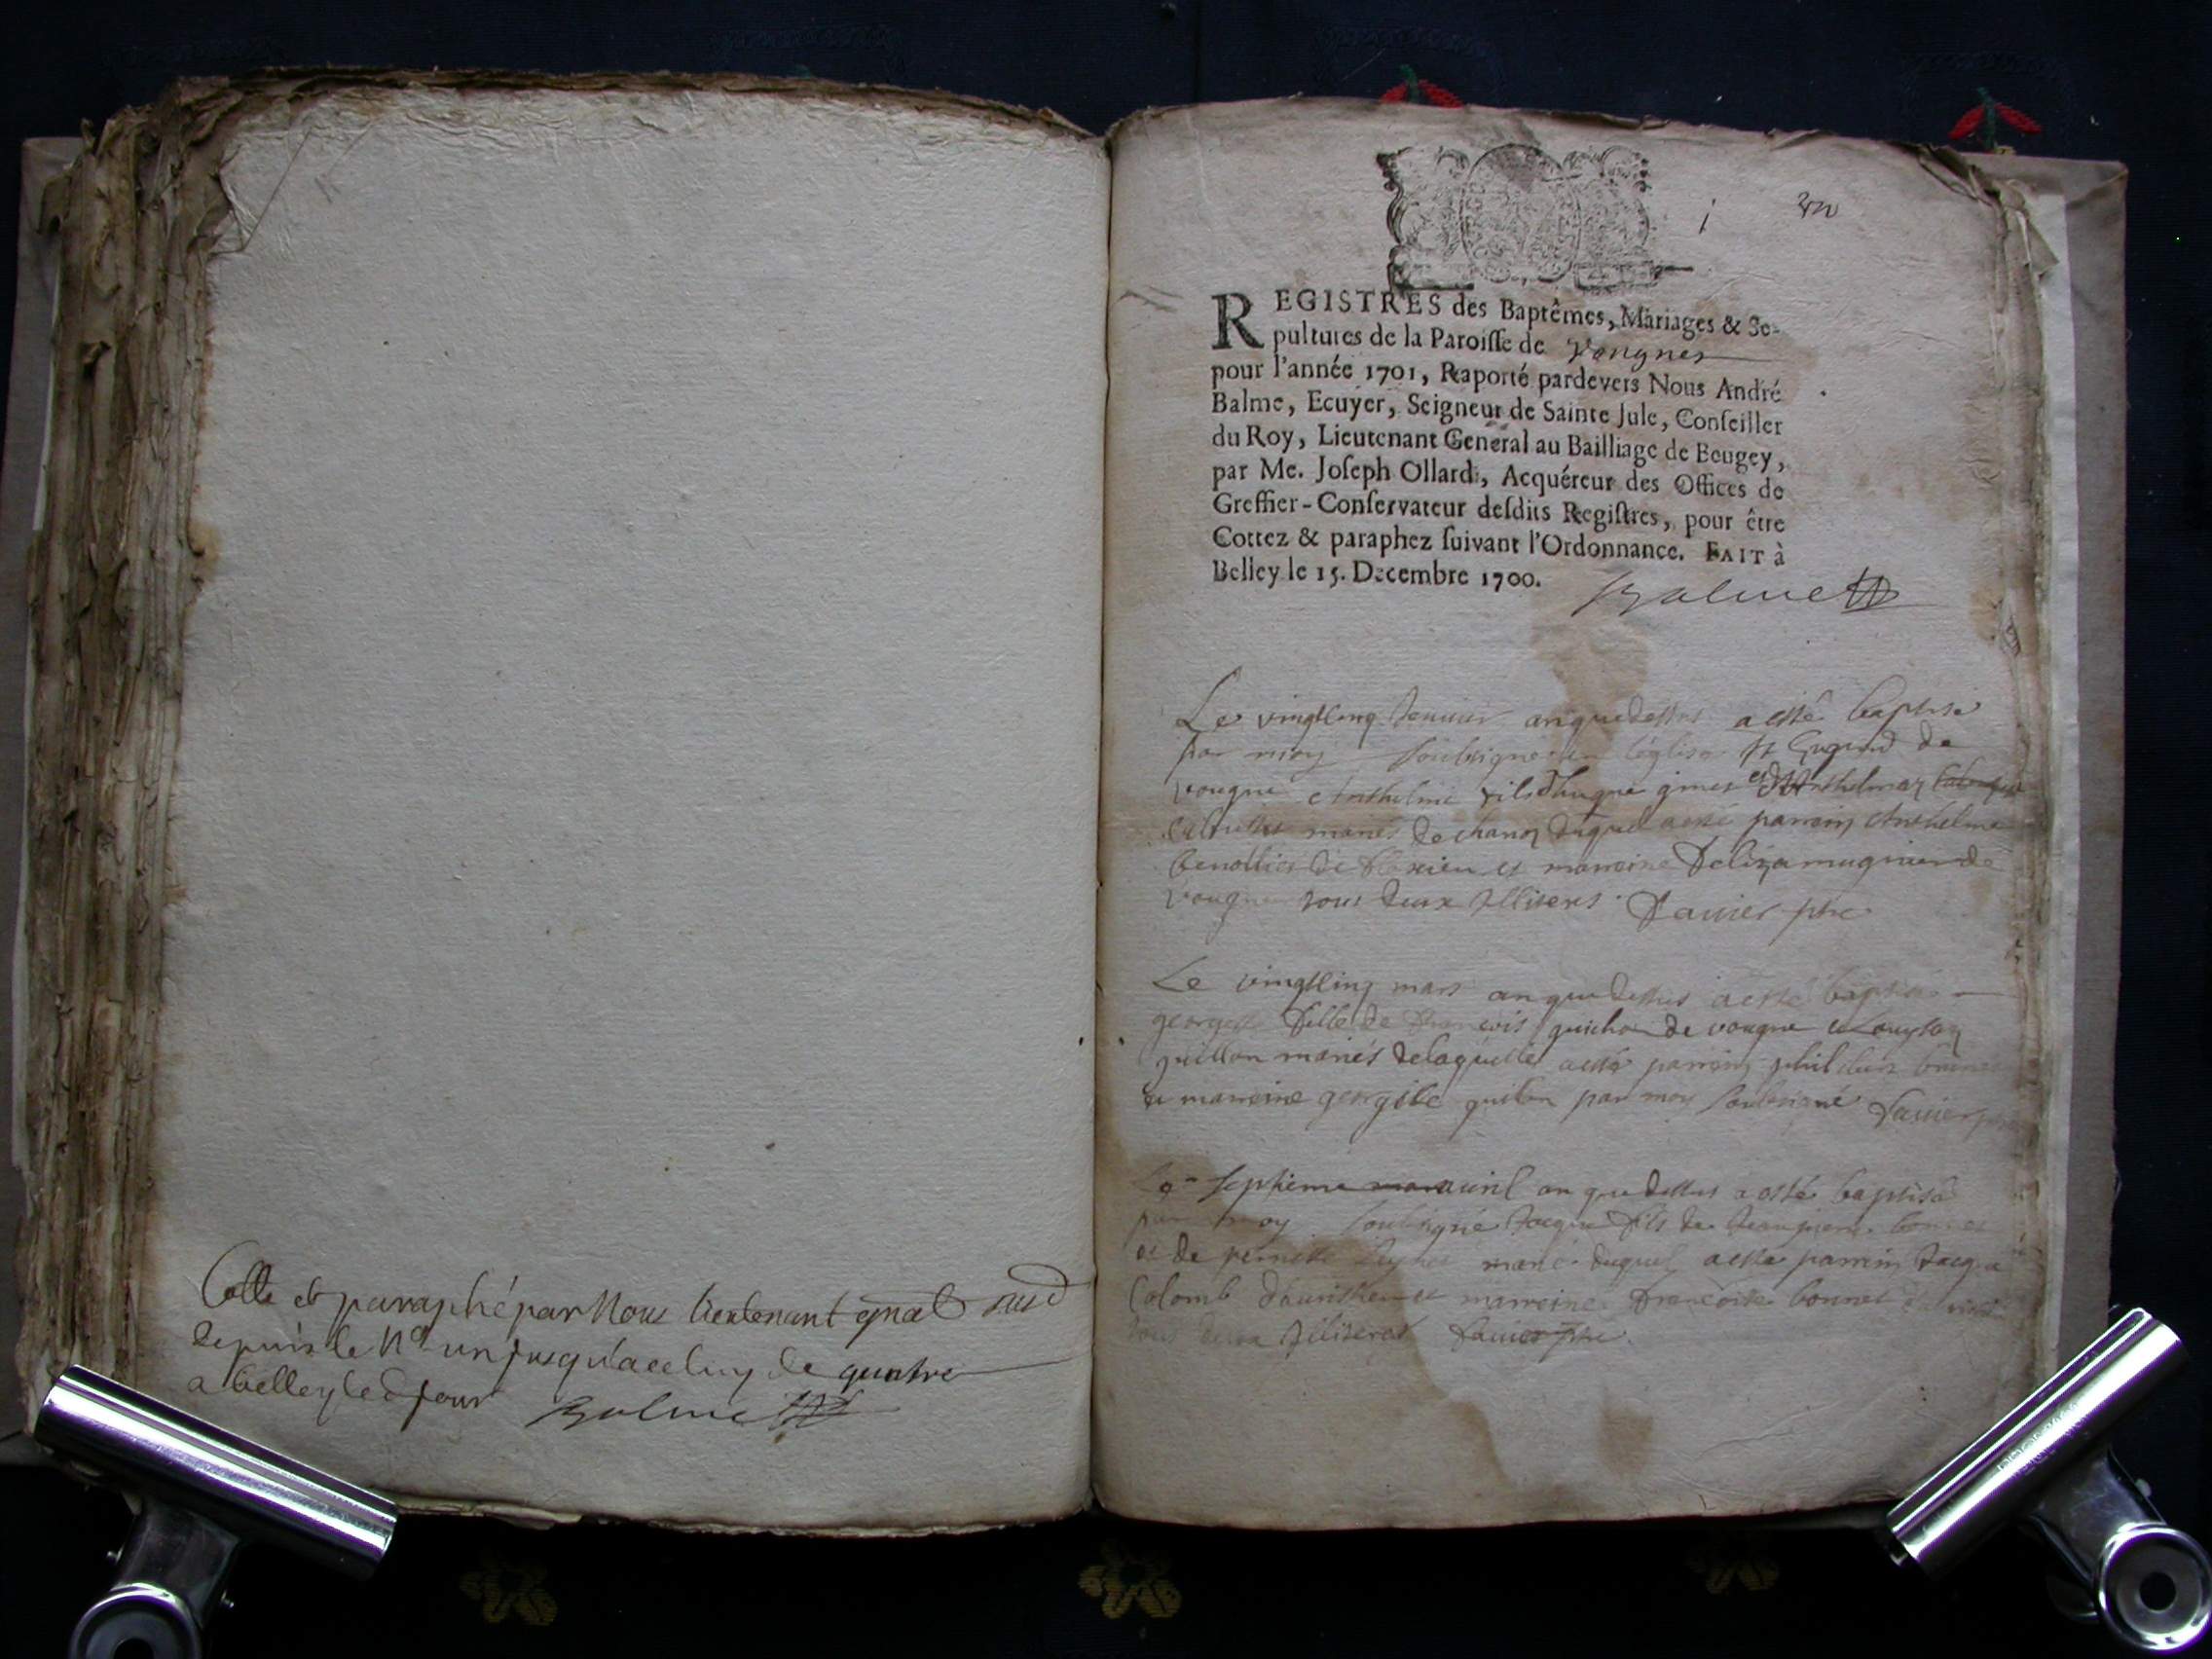 Cotte et paraphé par Nous lieutenant gñal susd
depuis le No un jusqu'a celuy de quatre
a belley led jour Balme
REGISTRES des Baptêmes, Mariages & Se-
pultures de la Paroisse de Vongnes
pour l'année 1701, Raporté pardevers Nous André
Balme, Ecuyer, Seigneur de Sainte Jule, Conseiller
du Roy, Lieutenant General au Bailliage de Beugey,
par Me. Joseph Ollard, Acquéreur des Offices de
Greffier-Conservateur desdits Registres, pour être
Cottez & paraphez suivant l'Ordonnance. FAIT à
Belley le 15. Decembre 1700.
Balme
Le vingtcinq Januier an que dessus a esté baptisé
par moy soubsigné en léglise st de
vougne Anthelme fils dhugue et dAnthelmaz
mariés de duquel a esté parrein Anthelme
de et marreine de
vougne tous deux illiteres. Dauier ptre
Le vingtcinq mars an que dessus a esté baptisée
georgette fille de francois guichon de vougne et Louyson
guillon mariés delaquelle a esté parrein philibert
et marreine georgette guillon par moy soubsigné Dauier ptre
Le septieme auril an que dessus a esté baptisé
par moy soubsigné Jacque fils de Jean pierre bonnet
et de pernette mariés duquel a esté parrein Jacque
Colomb et marreine francoise bonnet
tous deux illiteres Dauier ptre